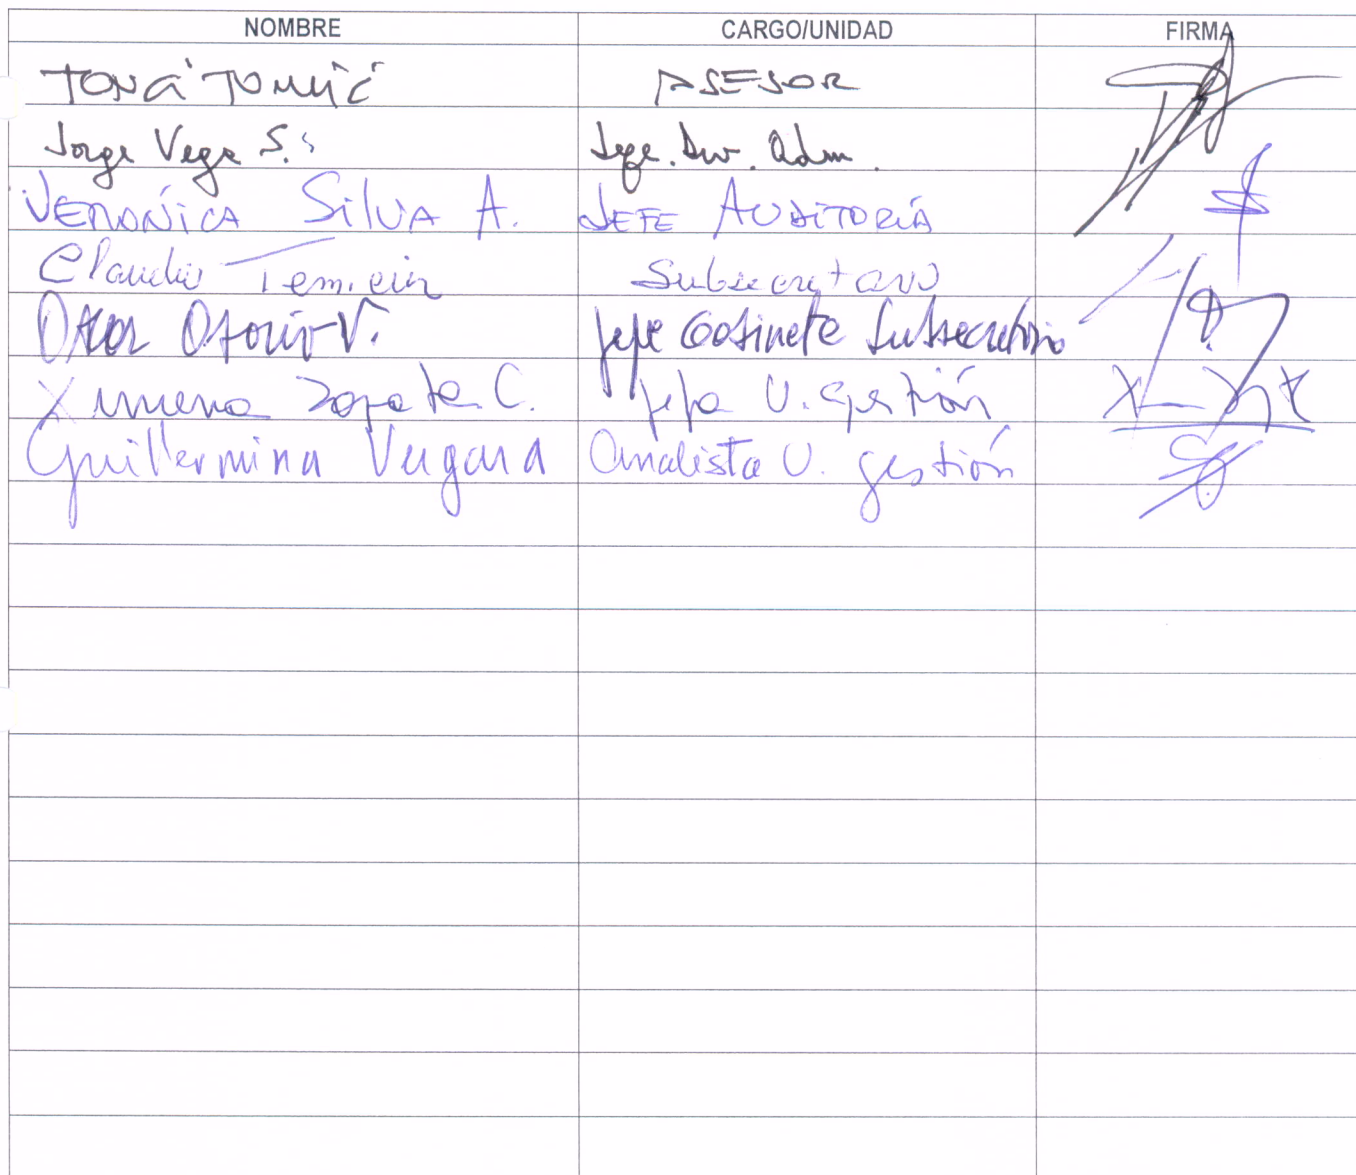 NOMBRE CARGO/UNIDAD FIRMA
TOMIĆ ASESOR
Jorge Vega S. Jefe. Div. Adm.
VERÓNICA SilVA A. JEFE AUDITORÍA
Claudio Subsecretario
Osorio V. Jefe Gabinete Subsecretario
Ximena Zapata C. Jefa U. Gestión
Guillermina Vergara Analista U. gestión